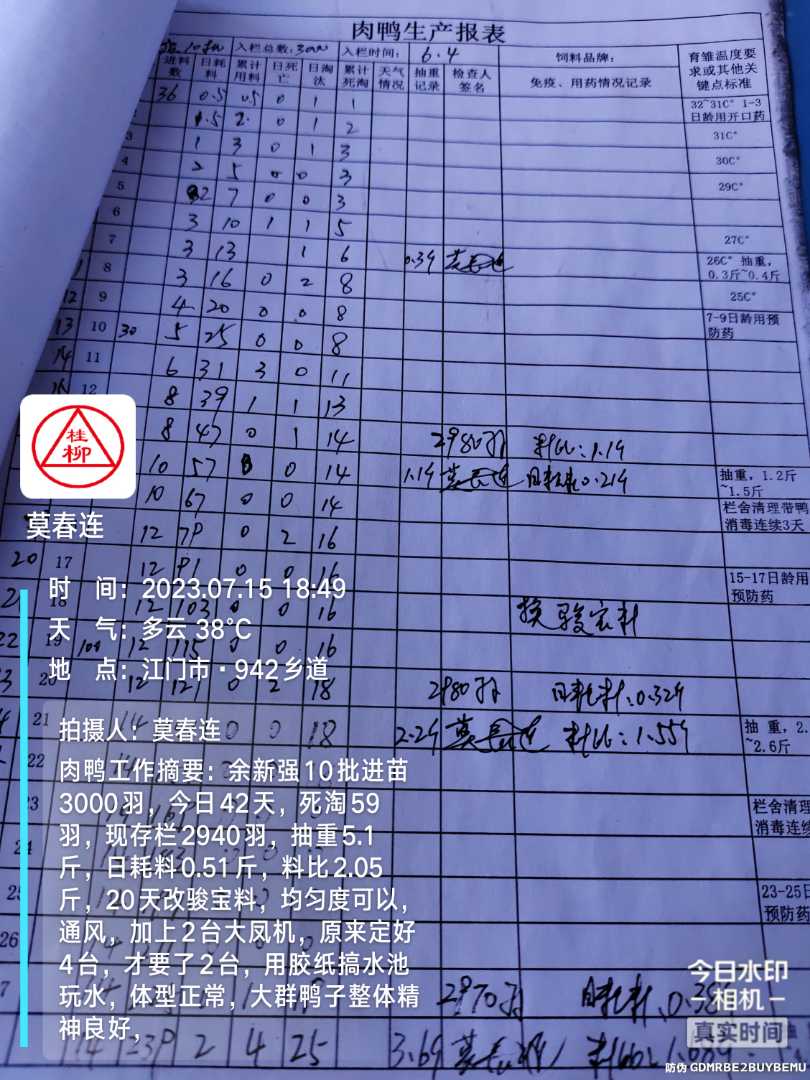 肉鸭生产报表
入栏总数: 3000 入栏时间: 6.4 饲料品牌: 育雏温度要求或其他关键点标准
进料数 日耗料 累计用料 日死亡 日淘汰 累计死淘 天气情况 抽重记录 检查人签名 免疫、用药情况记录
36 0.5 0.5 0 1 1 32~31C° 1-3日龄用开口药
1.5 2. 0 1 2
1 3 0 1 3 31C°
4 2 5 0 0 3 30C°
5 2 7 0 0 3 29C°
6 3 10 1 1 5
7 3 13 1 6 27C°
8 3 16 0 2 8 26C° 抽重,0.3斤~0.4斤
12 9 4 20 0 0 8 25C°
13 10 30 5 25 0 0 8 7-9日龄用预防药
14 11 6 31 3 0 11
12 8 39 1 1 13
8 47 0 1 14 2980羽 料比:1.19
10 57 0 14 1.19 莫春连 日耗料0.219 抽重,1.2斤~1.5斤
10 67 0 0 14 栏舍清理带鸭消毒连续3天
12 79 0 2 16
20 17 12 91 0 0 16 15-17日龄用预防药
18 12 103 0 0 16 换骏宝料
22 19 100 12 115 0 0 16
20 12 127 0 2 18 2980羽 日耗料:0.329
21 14 0 0 18 2.29 莫春连 料比:1.559 抽重,2.
~2.6斤
22
23 栏舍清理
消毒连续
24
25 23-25日
预防药
26
2970羽 日耗料
14 239 2 4 25 3.69
桂柳
莫春连
时 间:2023.07.15 18:49
天 气:多云 38°C
地 点:江门市·942乡道
拍摄人:莫春连
肉鸭工作摘要:余新强10批进苗
3000羽,今日42天,死淘59
羽,现存栏2940羽,抽重5.1
斤,日耗料0.51斤,料比2.05
斤,20天改骏宝料,均匀度可以,
通风,加上2台大凤机,原来定好
4台,才要了2台,用胶纸搞水池
玩水,体型正常,大群鸭子整体精
神良好,
今日水印
相机
真实时间
防伪 GDMRBE2BUYBEMU